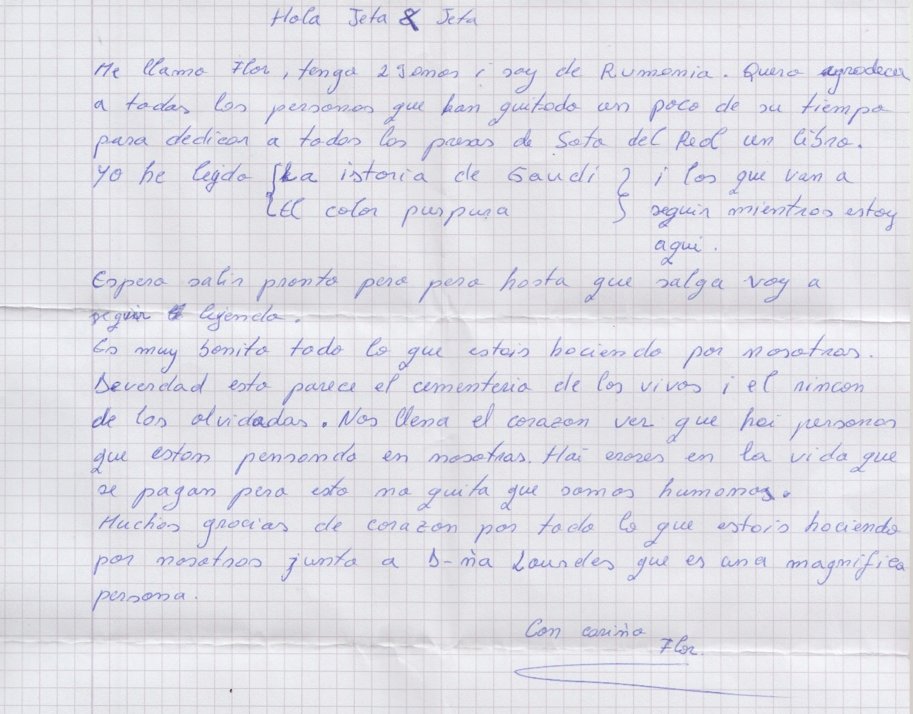 Hola Jeta & Jeta
Me llamo Flor, tengo 29 anos i soy de Rumania. Quero agradecer
a todas las personas que han quitado un poco de su tiempo
para dedicar a todos los presos de Soto del Real un libro.
Yo he leijdo { La istoria de Gaudi } i los que van a
{ El color purpura } seguir mientras estoy
aqui.
Espero salir pronto pero pero hasta que salga voy a
seguir lejendo.
Es muy bonito todo lo que estais haciendo por nosotros.
Deverdad esto parece el cementerio de los vivos i el rincon
de los olvidados. Nos llena el corazon ver que hai personas
que estan pensando en nosotros. Hai erores en la vida que
se pagan pero esto no quita que somos humanos.
Muchas gracias de corazon por todo lo que estais haciendo
por nosotros junto a D-ña Lourdes que es una magnifica
persona.
Con cariño
Flor.